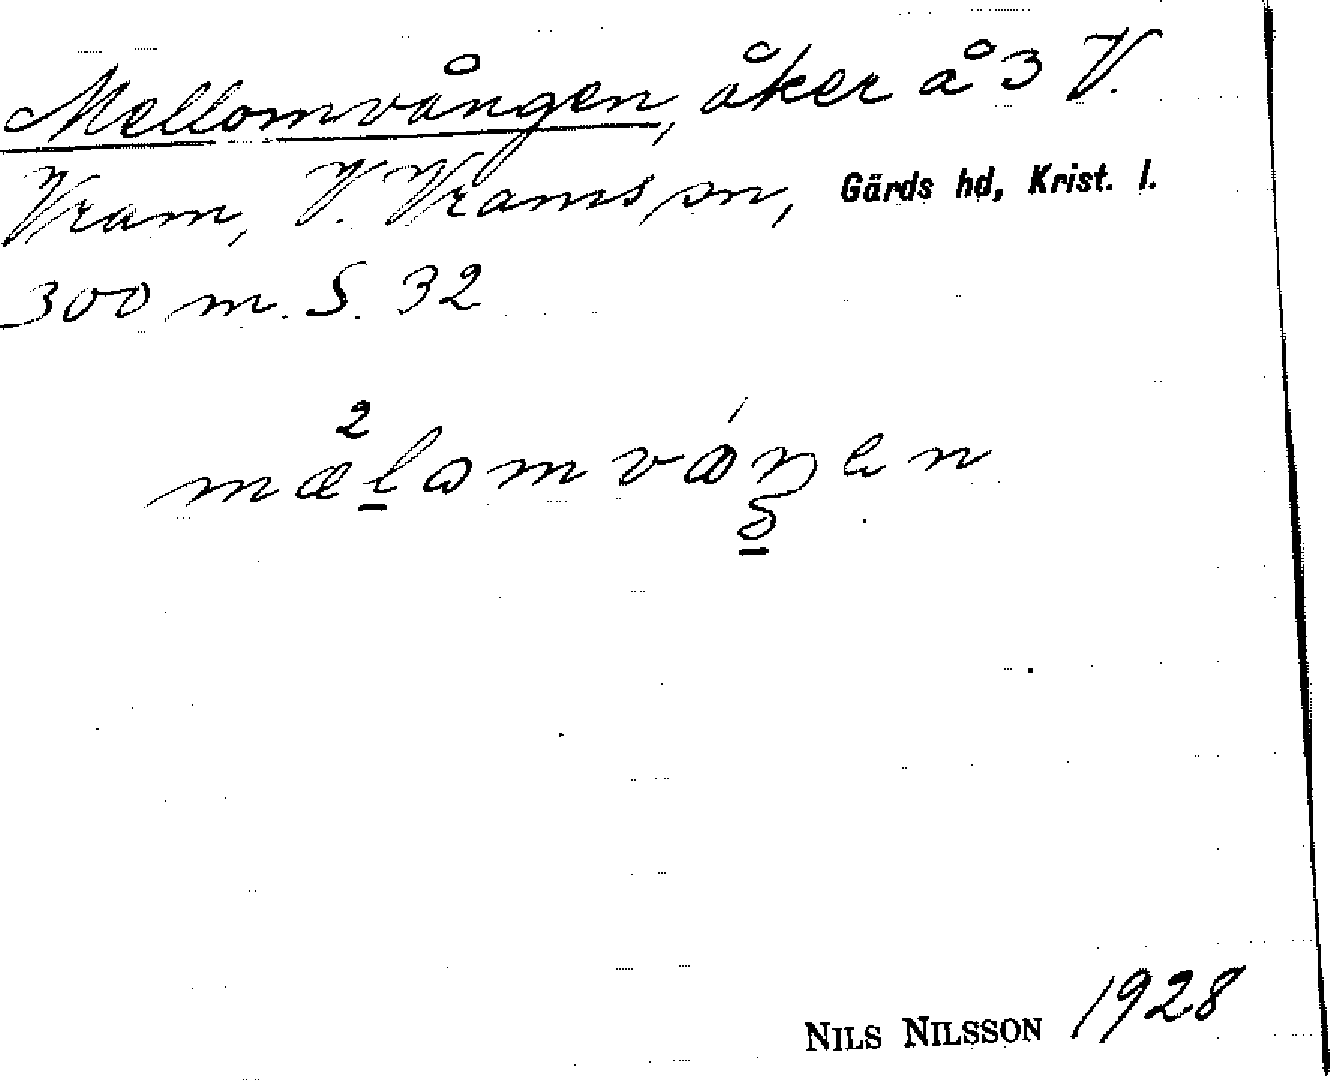 Mellomvången, åker å 3 V.
Vram, V. Vrams sn, Gärds hd, Krist. l.
300 m. S. 32
NILS NILSSON 1928